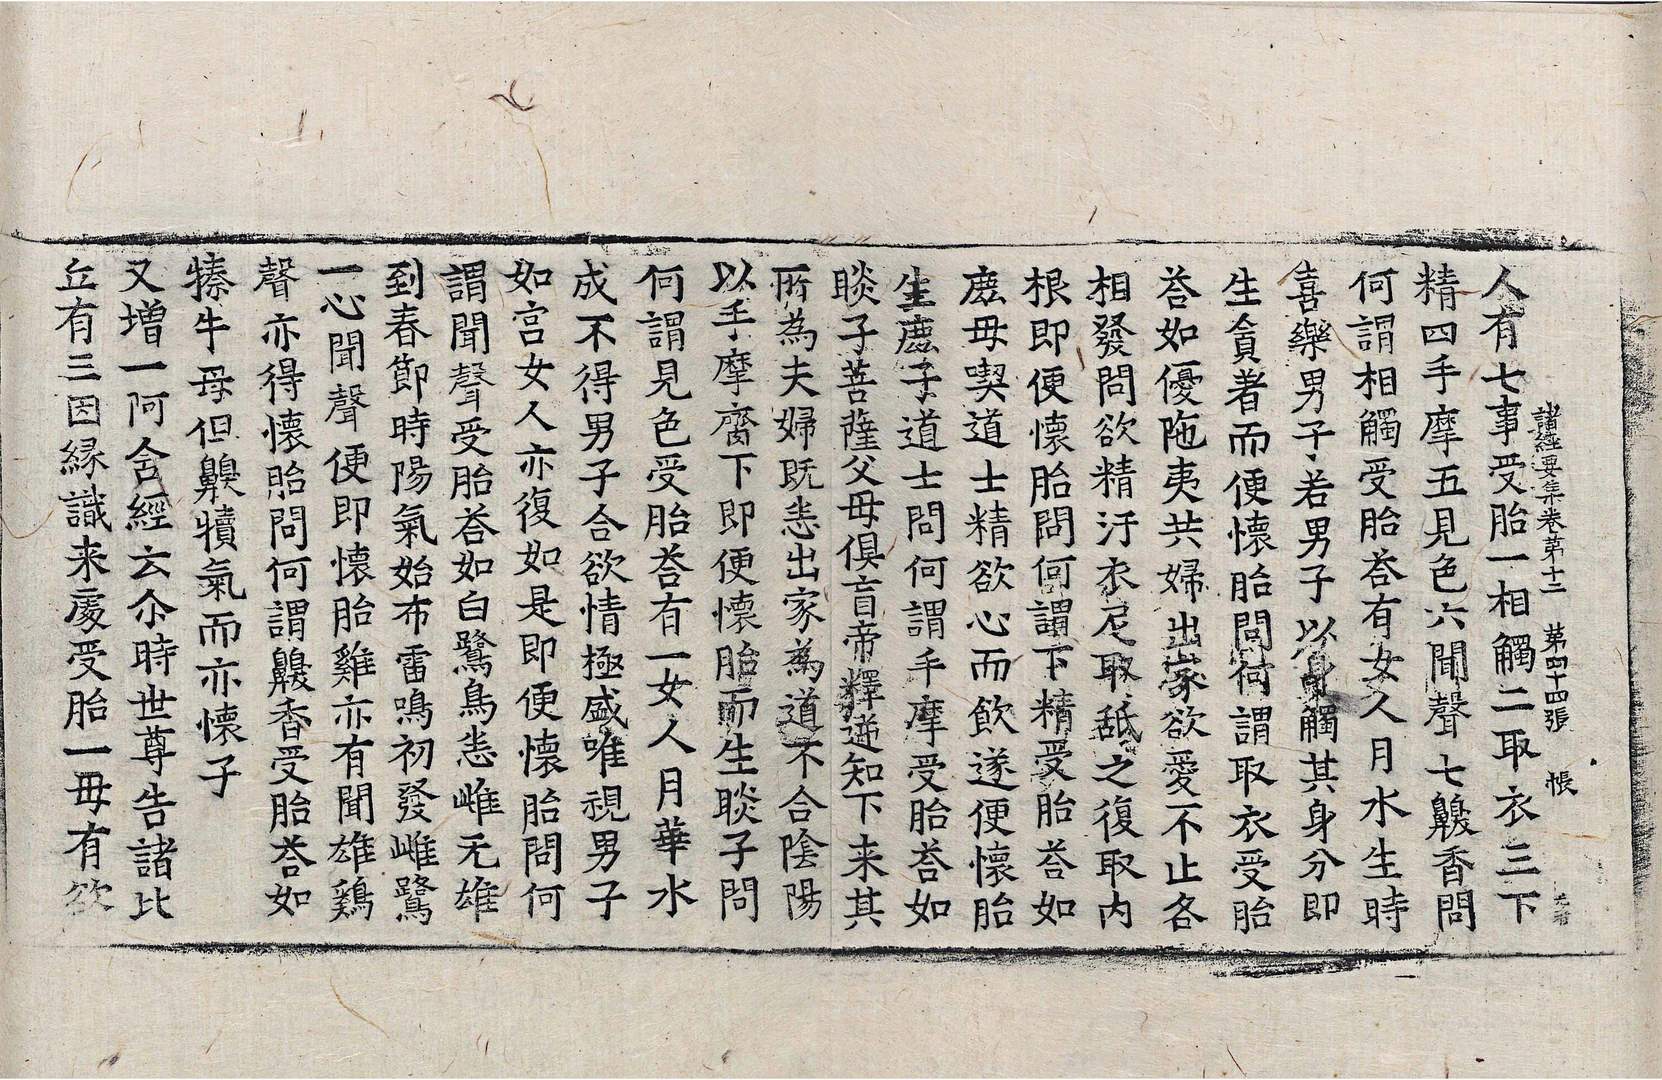 諸經要集卷第十二 第四十四張 帳
人有七事受胎一相觸二取衣三下
精四手摩五見色六聞聲七齅香問
何謂相觸受胎荅有女人月水生時
喜樂男子若男子以身觸其身分即
生貪著而便懷胎問何謂取衣受胎
荅如優陁夷共婦出家欲愛不止各
相發問欲精汙衣尼取舐之復取內
根即便懷胎問何謂下精受胎荅如
鹿母喫道士精欲心而飲遂便懷胎
生鹿子道士問何謂手摩受胎荅如
睒子菩薩父母俱盲帝釋逆知下来其
所為夫婦既恙出家為道不合陰陽
以手摩齎下即便懷胎而生睒子問
何謂見色受胎荅有一女人月華水
成不得男子合欲情極盛唯視男子
如宮女人亦復如是即便懷胎問何
謂聞聲受胎荅如白鷺鳥恙雌无雄
到春節時陽氣始布雷鳴初發雌鷺
一心聞聲便即懷胎雞亦有聞雄鷄
聲亦得懷胎問何謂齅香受胎荅如
㹀牛母但齅犢氣而亦懷子
又增一阿含經云尒時世尊告諸比
丘有三因縁識来處受胎一母有欲